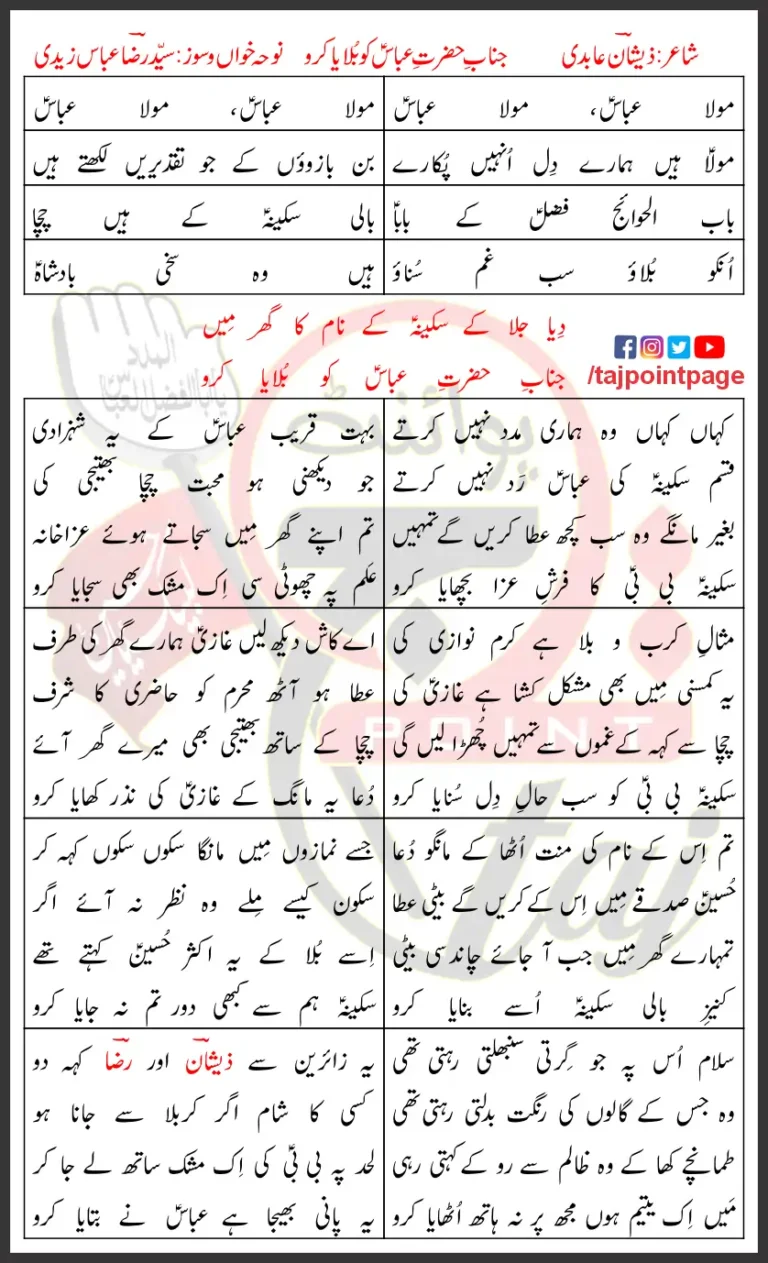 شاعر: ذیشانؔ عابدی جنابِ حضرتِ عباسؑ کو بُلایا کرو نوحہ خواں و سوز: سیّد رضاؔ عباس زیدی
مولا عباسؑ، مولا عباسؑ
مولا عباسؑ، مولا عباسؑ
مولاؑ ہیں ہمارے دِل اُنہیں پُکارے
بن بازوؤں کے جو تقدیریں لکھتے ہیں
باب الحوائج فضلؑ کے باباؑ
بالی سکینہؑ کے ہیں چچا
اُنکو بُلاؤ سب غم سُناؤ
ہیں وہ سخی بادشاہؑ
دِیا جلا کے سکینہؑ کے نام کا گھر مِیں
جنابِ حضرتِ عباسؑ کو بُلایا کرو
/tajpointpage
کہاں کہاں وہ ہماری مدد نہیں کرتے
قسم سکینہؑ کی عباسؑ رَد نہیں کرتے
بغیر مانگے وہ سب کچھ عطا کریں گے تمہیں
سکینہؑ بی بیؑ کا فرشِ عزا بچھایا کرو
بہت قریب عباسؑ کے یہ شہزادی
جو دیکھنی ہو محبت چچا بھتیجی کی
تم اپنے گھر مِیں سجاتے ہوئے عزاخانہ
علَم پہ چھوٹی سی اِک مشک بھی سجایا کرو
مثالِ کرب و بلا ہے کرم نوازی کی
یہ کمسنی مِیں بھی مشکل کشا ہے غازیؑ کی
چچا سے کہہ کے غموں سے تمہیں چُھڑا لیں گی
سکینہؑ بی بیؑ کو سب حالِ دِل سُنایا کرو
اے کاش دیکھ لیں غازیؑ ہمارے گھر کی طرف
عطا ہو آٹھ محرم کو حاضری کا شرف
چچا کے ساتھ بھتیجی بھی میرے گھر آئے
دُعا یہ مانگ کے غازیؑ کی نذر کھایا کرو
تم اِس کے نام کی منت اُٹھا کے مانگو دُعا
حُسینؑ صدقے مِیں اِس کے کریں گے بیٹی عطا
تمہارے گھر مِیں جب آ جائے چاند سی بیٹی
کنیزِ بالی سکینہؑ اُسے بنایا کرو
جسے نمازوں مِیں مانگا سکوں سکوں کہہ کر
سکون کیسے مِلے وہ نظر نہ آئے اگر
اِسے بُلا کے یہ اکثر حُسینؑ کہتے تھے
سکینہؑ ہم سے کبھی دور تم نہ جایا کرو
سلام اُس پہ جو گِرتی سنبھلتی رہتی تھی
وہ جس کے گالوں کی رنگت بدلتی رہتی تھی
طمانچے کھا کے وہ ظالم سے رو کے کہتی رہی
مَیں اِک یتیم ہوں مجھ پر نہ ہاتھ اُٹھایا کرو
یہ زائرین سے ذیشانؔ اور رضاؔ کہہ دو
کسی کا شام اگر کربلا سے جانا ہو
لحد پہ بی بیؑ کی اِک مشک ساتھ لے جا کر
یہ پانی بھیجا ہے عباسؑ نے بتایا کرو
پوائنٹ
تاج
POINT
taj